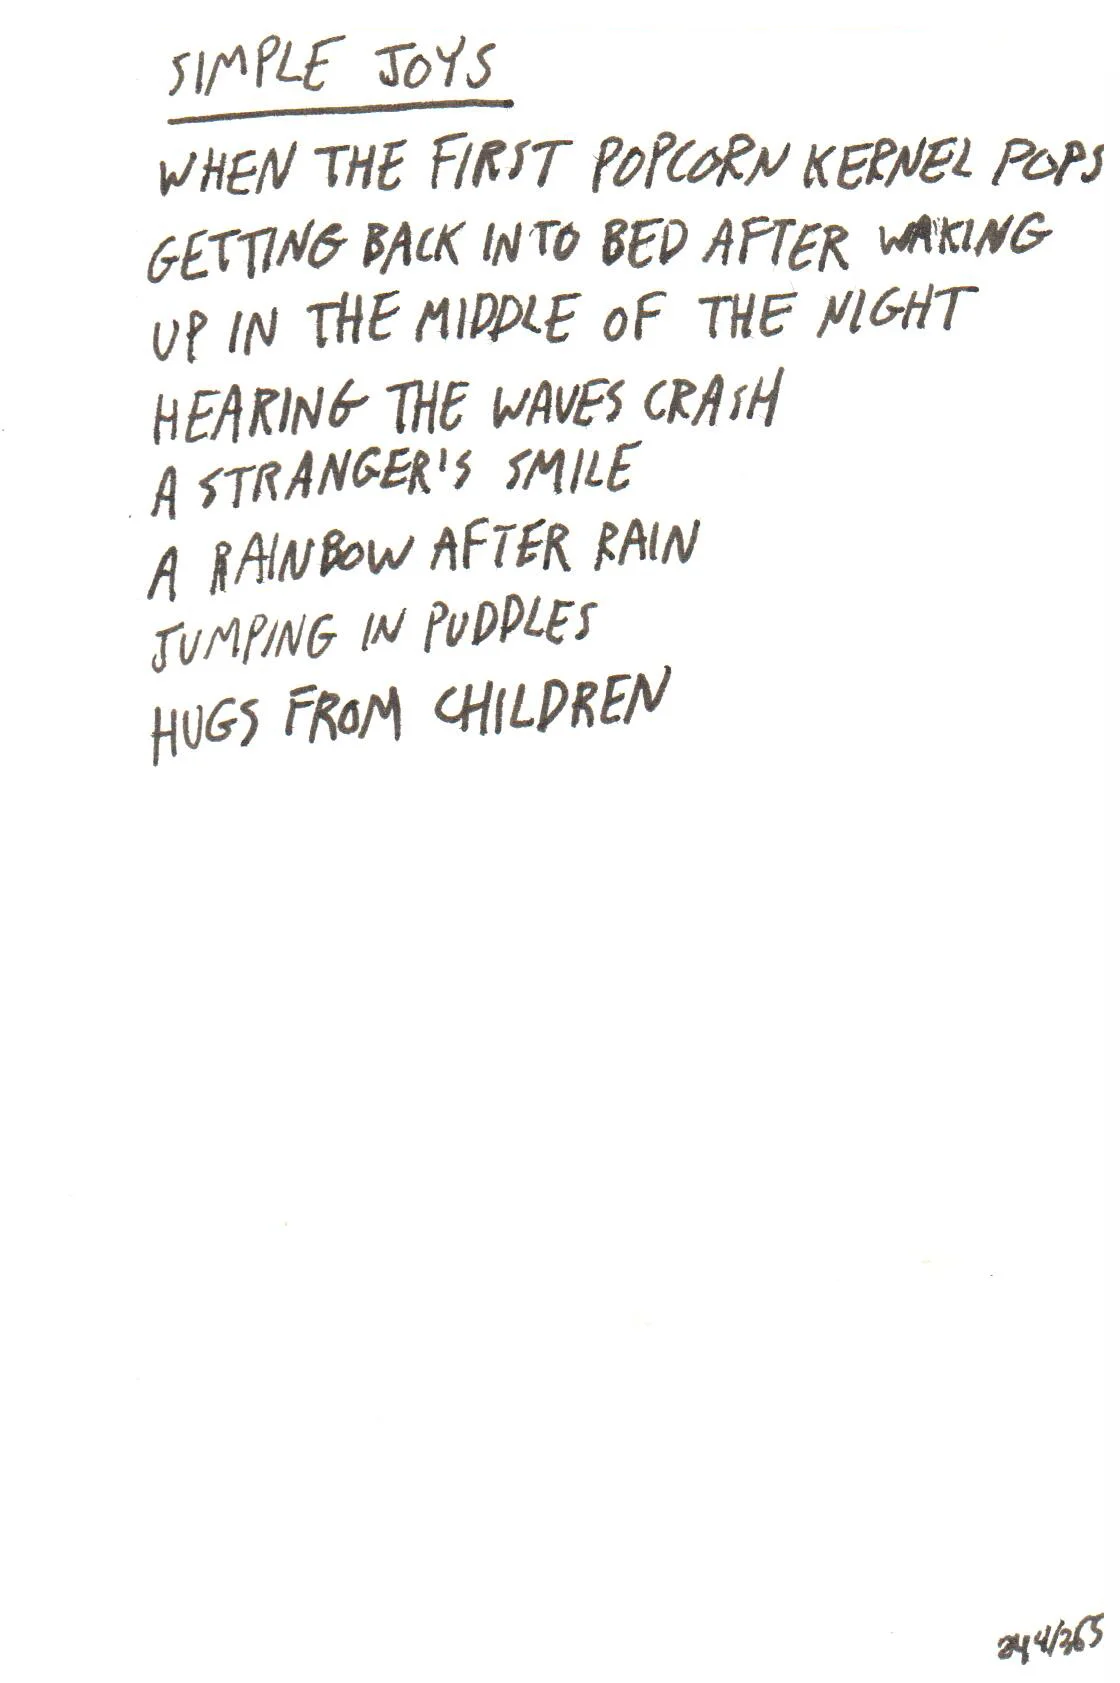 SIMPLE JOYS
WHEN THE FIRST POPCORN KERNEL POPS
GETTING BACK INTO BED AFTER WAKING
UP IN THE MIDDLE OF THE NIGHT
HEARING THE WAVES CRASH
A STRANGER'S SMILE
A RAINBOW AFTER RAIN
JUMPING IN PUDDLES
HUGS FROM CHILDREN
244/365